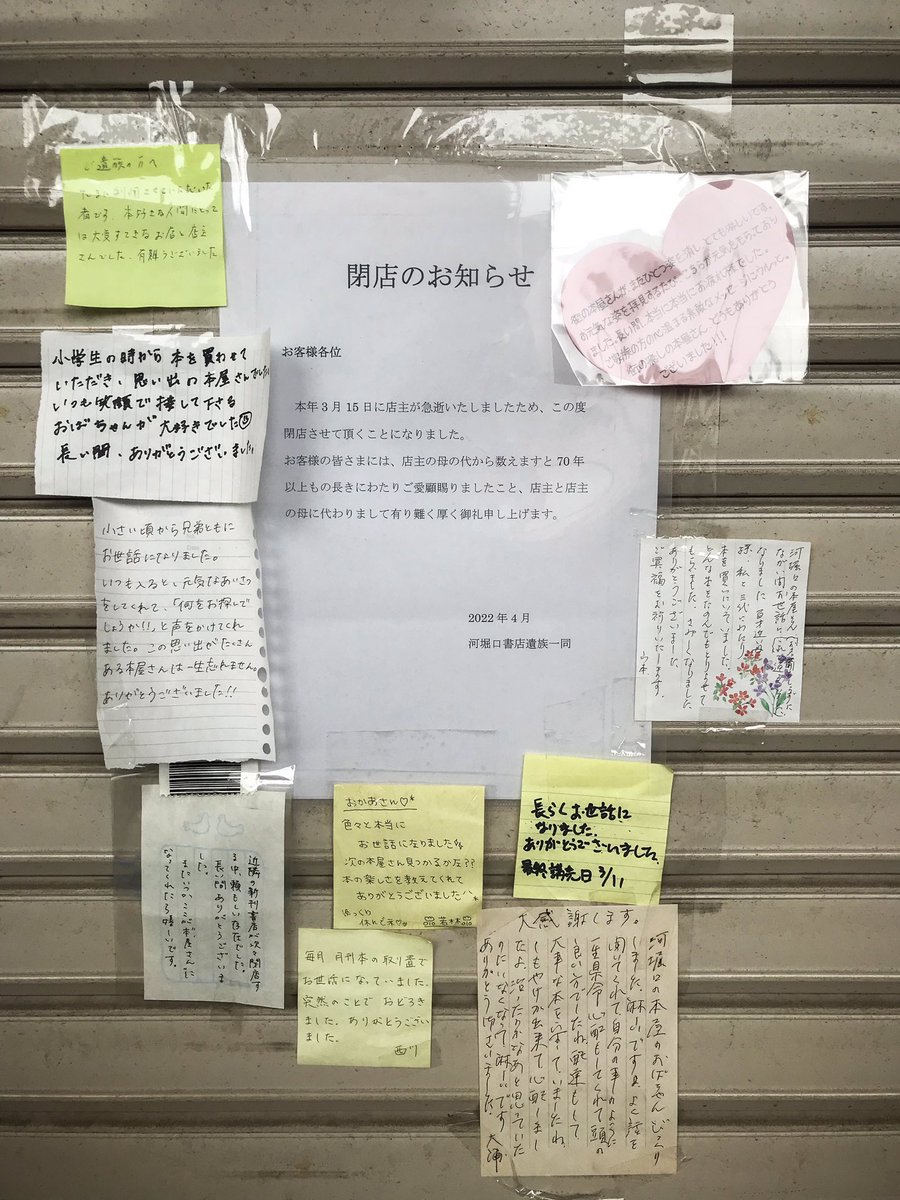 閉店のお知らせ
お客様各位
本年3月15日に店主が急逝いたしましたため、この度
閉店させて頂くことになりました。
お客様の皆さまには、店主の母の代から数えますと70年
以上もの長きにわたりご愛顧賜りましたこと、店主と店主
の母に代わりまして有り難く厚く御礼申し上げます。
2022年4月
河堀口書店遺族一同
ご遺族の方へ
たまに利用させていただいた
者です。本好きな人間にとって
は大変すてきなお店と店主
さんでした。有難うございました
小学生の時から本を買わせて
いただき、思い出の本屋さんでした
いつも笑顔で接して下さる
おばちゃんが大好きでした
長い間、ありがとうございました
小さい頃から兄弟ともに
お世話になりました。
いつも入ると、元気なあいさつ
をしてくれて、「何をお探しで
しょうか!!」と声をかけてくれ
ました。この思い出がたくさん
ある本屋さんは一生忘れません。
ありがとうございました!!
街の本屋さんがまたひとつ姿を消し、とても淋しいです。
お元気な姿を拝見するたび、こちらが元気をもらっており
ました。長い間、本当に本当にお疲れ様でした。
ご遺族の方の心温まる素敵なメッセージにうるっと。
街の癒しの本屋さん、どうもありがとう
ございました!!!
河堀口の本屋さん
ながい間お世話に
なりました
私と三代にわたり
本を買いにいっていました。
どんな本をたのんでもとりよせて
もらえました。さみしくなりました
ありがとうございました
ご冥福をお祈りいたします。
山本
近隣の新刊書店が次々閉店す
る中、頼もしい存在でした。
長い間ありがとうございま
した。
またいつか、ここが本屋さんに
なってくれたら嬉しいです。
おかあさん♡
色々と本当に
お世話になりました
次の本屋さん見つかるかな??
本の楽しさを教えてくれて
ありがとうございました
ゆっくり
休んで
若林
長らくお世話に
なりました。
ありがとうございました。
最終購読日 3/11
毎月 月刊本の取り置で
お世話になっていました。
突然のことで おどろき
ました。ありがとうござい
ました。
西川
大感謝します。
河堀口の本屋のおばちゃん びっくり
しました。淋しいですよ よく話を
聞いてくれて自分の事のように
一生県命心配もしてくれて頭の
良い方でしたね。配達もして
大事な本を
しもやけが出来て心配しまし
たよ。治ったかなあと思っていた
のにいなくなって淋しいです
ありがとうございました。大浦